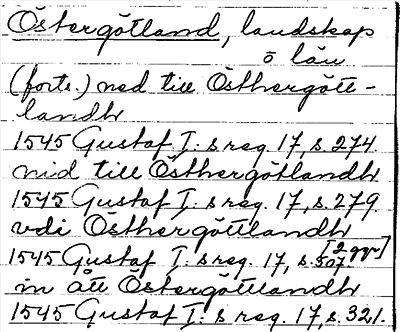 Östergötland, landskap
o län
(forts.) ned till Östhergött-
landh
1545 Gustaf I:s reg. 17, s. 274.
nid till Östhergötlandh
1545 Gustaf I:s reg. 17, s. 279.
vdi Östhergöttlandh
[2 ggr]
1545 Gustaf I:s reg. 17, s. 507
in ått Östergöttlandh
1545 Gustaf I:s reg. 17, s. 321.